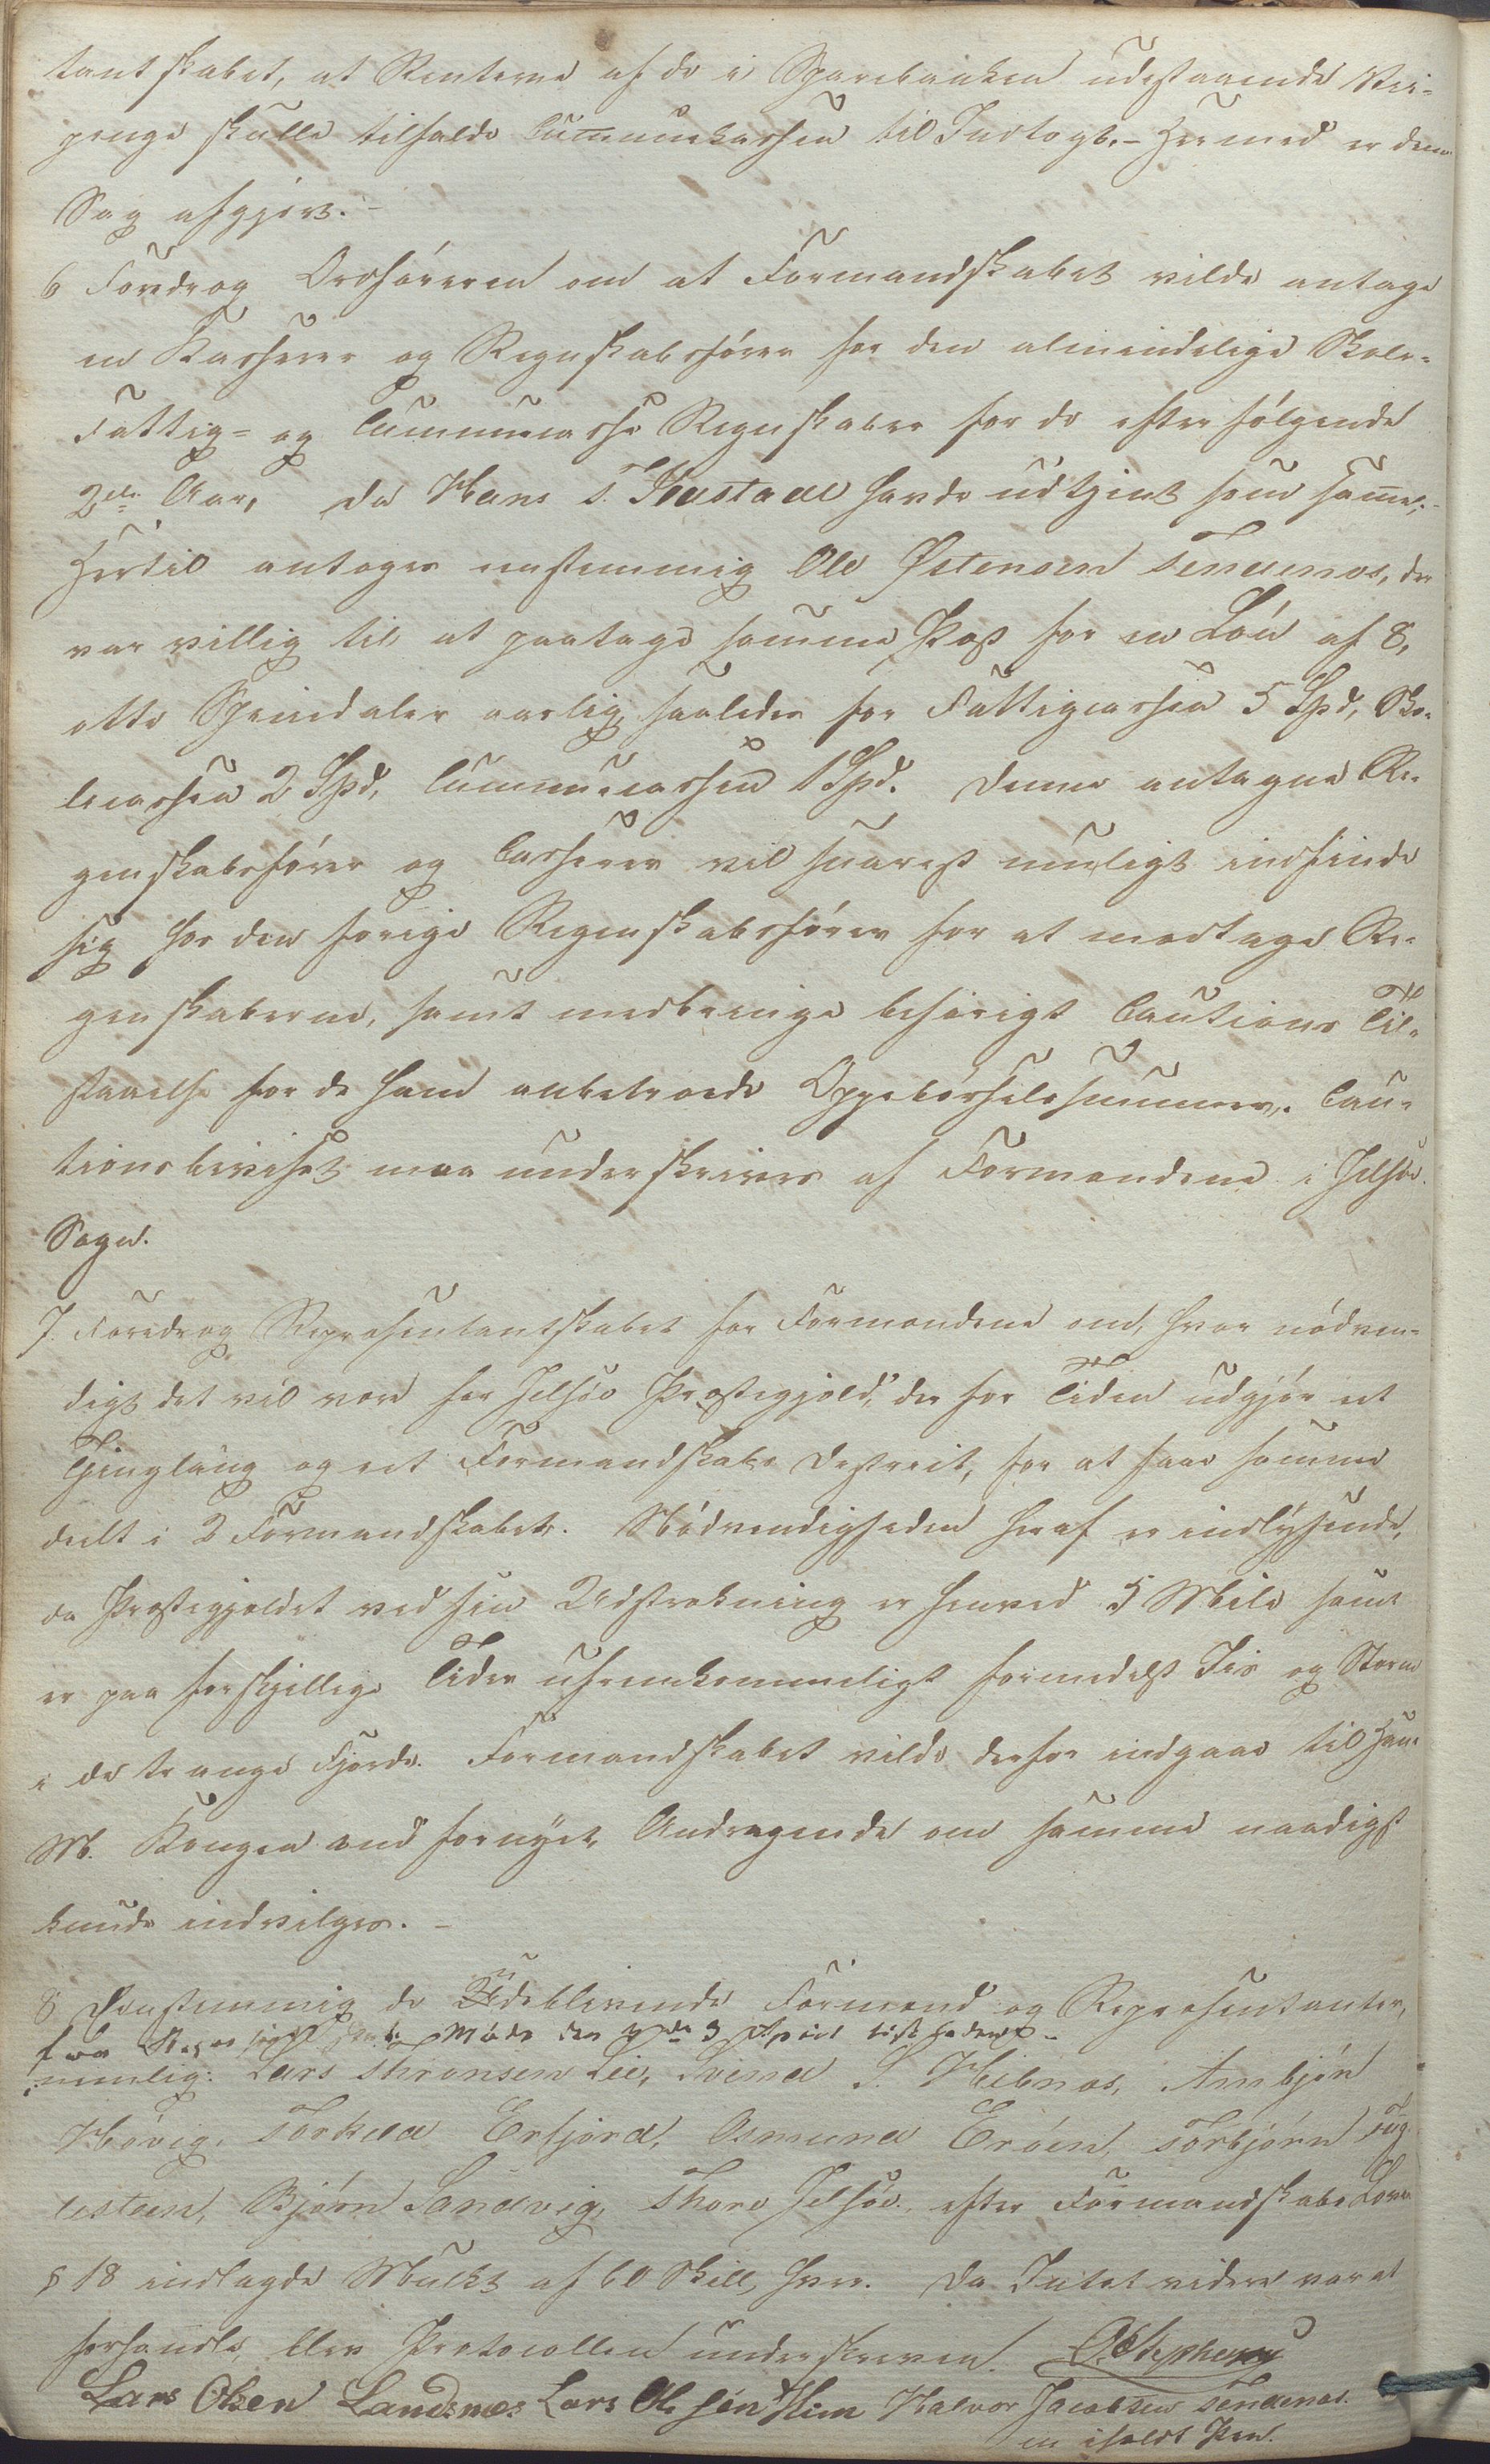 tantskabet, at Renterne af de i Sparebanken udestaaende Vei-
penge skulle tilfalde Cummunekassen til Indtægt. – Hermed er denne
Sag afgjørt. –
6 Fordrog Ordføreren om at Formandskabet vilde antage
en Kasserer og Regnskabsfører for den almindelige Skole-
Fattig- og Cummunecasse Regnskaber for de efterfølgende
2de Aar, da Hans T. Hustade havde udtjent som samme;
Hertil antoges eenstemmig Ole Østensen Tendenæs, der
var villig til at paatage samme Post for en Løn af 8,
otte Speciedaler aarlig, saaledes for Fattigcassen 5 Spd, Sko-
lecassen 2 Spd, Cummunecassen 1 Spd. Denne antagne Re-
genskabsfører og Casserer vil snarest muligt indfinde
sig hos den forige Regenskabsfører for at modtage Re-
genskaberne, samt medbringe behørigt Cautions Til-
staaelse for de ham anbetroede Oppebørselssummer. Cau-
tionsbeviset maa underskrives af Formændene i Jelsøe
Sogn.
7. Foredrog Repræsentantskabet for Formændene om, hvor nødven-
digt det vil være for Jelsøe Præstegjæld, der for Tiden udgjør et
Thinglaug og eet Formandskabs Destrict, for at faae samme
deelt i 2 Formandskaber. Nødvendigheden heraf er indlysende,
da Præstegjældet ved sin Udstrækning er henved 5 Mile samt
er paa forskjellige Tider ufremkommeligt formedelst Iis og Storm
i de trange Fjorde. Formandskabet vilde derfor indgaae til Hans
M. Kongen med fornyet Andragende om samme naadigst
kunde indvilges. –
8 Eenstemmig de Udeblivende Formænd og Repræsentanter,
fra Møde den 3 April
nemlig: Lars Thronsen Lie, Svend S. Hebnæs, Ambjør
Høvig, Torkild Erfjord, Osmund Erøen, Torbjørn Fug-
lesteen, Bjørn Sandvig, Thore Jelsøe, efter Formandskabs Loven
§ 18 ilagde Mulkt af 60 Skill, hver. Da Intet videre var at
forhandle, blev Protocollen underskreven. O. Stephensen
Lars Olsen Landsnæs Lars Olsen Hiim Halvor Jacobsen Tendenæs.
m iholdt Pen.